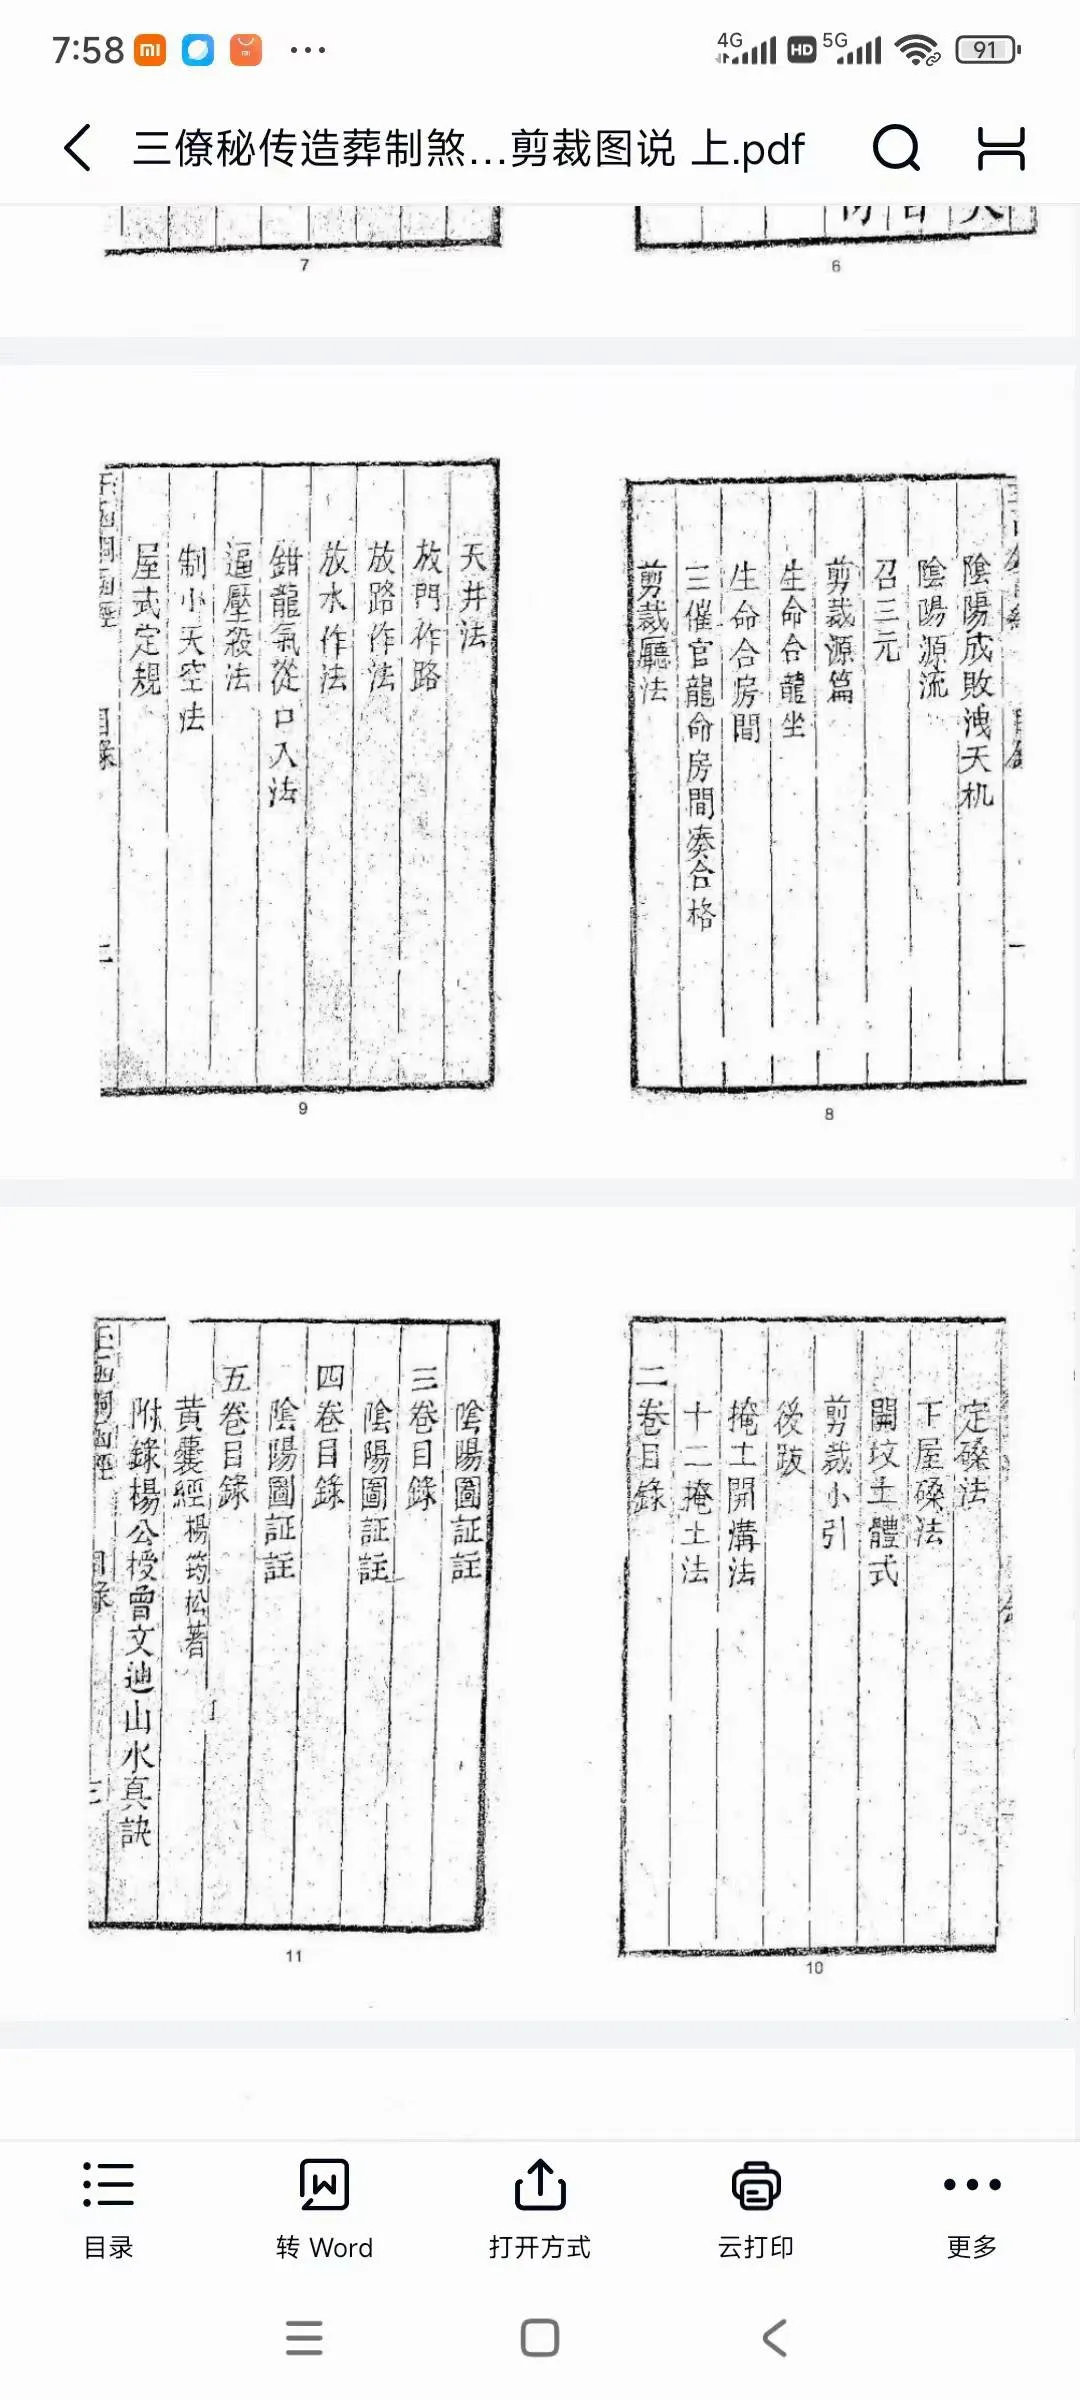 7:58
4G
HD
5G
91
三僚秘传造葬制煞...剪裁图说 上.pdf
6
7
陰陽成敗洩天机
陰陽源流
召三元
剪裁源篇
生命合龍坐
生命合房間
三催官龍命房間湊合格
剪裁廳法
8
天井法
放門作路
放路作法
放水作法
鉗龍氣從口入法
逼壓殺法
制小天空法
屋式定規
目錄
9
定磉法
下屋磉法
開坟土體式
剪裁小引
後跋
掩土開溝法
十二掩土法
二卷目錄
10
陰陽圖証註
三卷目錄
陰陽圖証註
四卷目錄
陰陽圖証註
五卷目錄
黃囊經楊筠松著
附錄楊公授曾文辿山水真訣
目錄
11
目录
转 Word
打开方式
云打印
更多